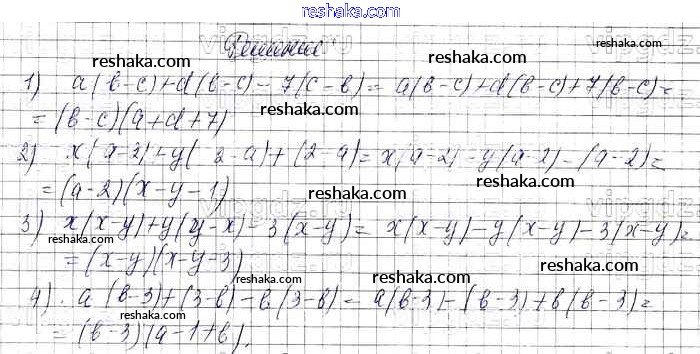 reshaka.com
Решение
reshaka.com reshaka.com
1) a(b-c)+d(b-c)-7(c-b)= a(b-c)+d(b-c)+7(b-c)=
reshaka.com
=(b-c)(a+d+7)
reshaka.com reshaka.com
2) x(a-2)+y(2-a)+(2-a)=x(a-2)-y(a-2)-(a-2)=
=(a-2)(x-y-1)
reshaka.com
3) x(x-y)+y(y-x)-3(x-y)= x(x-y)-y(x-y)-3(x-y)=
reshaka.com reshaka.com
=(x-y)(x-y-3)
reshaka.com reshaka.com
4) a(b-3)+(3-b)-b(3-b)=a(b-3)-(b-3)+b(b-3)=
reshaka.com reshaka.com
=(b-3)(a-1+b).
reshaka.com